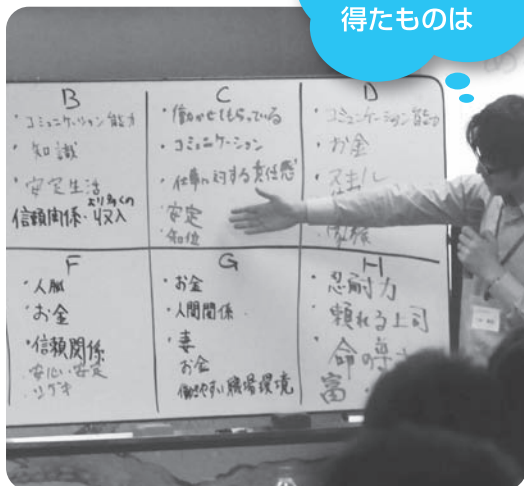 得たものは
B
・コミュニケーション能力
・知識
・安定生活
より多くの
信頼関係・収入
C
・働かせてもらっている
・コミュニケーション
・仕事に対する責任感
安定
地位
D
・コミュニケーション能力
・お金
・スキル
F
・人脈
・お金
・信頼関係
・安心・安定
G
・お金
・人間関係
・妻
お金
働きやすい職場環境
H
・忍耐力
・頼れる上司
命の
富